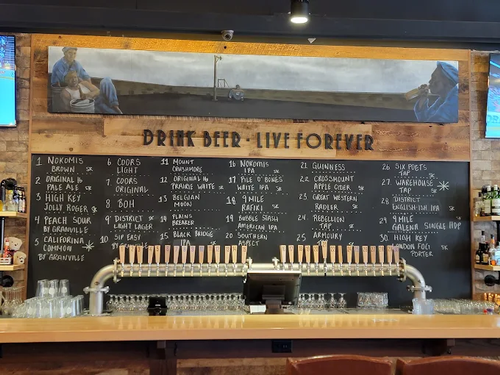 DRINK BEER · LIVE FOREVER
1 NOKOMIS
BROWN SK
2 ORIGINAL 16
PALE ALE SK
3 HIGH KEY
JOLLY ROGER SK
4 PEACH SOUR
BY GRANVILLE
5 CALIFORNIA
COMMON
BY GRANVILLE
6 COORS
LIGHT
7 COORS
ORIGINAL
8 BOH
9 DISTRICT SK
LIGHT LAGER
10 SIP EASY
11 MOUNT
CRUSHMORE
12 ORIGINAL 16
PRAIRIE WHITE SK
13 BELGIAN
MOON
14 PLAINS
15 BLACK BRIDGE
IPA SK
16 NOKOMIS
IPA SK
17 PILE O' BONES
WHITE IPA SK
18 9 MILE
19 BUBBLE STASH
AMERICAN IPA
20 SOUTHERN
ASPECT
21 GUINNESS
22 CROSSMOUNT
APPLE CIDER SK
23 GREAT WESTERN
RADLER SK
24 REBELLION
TAP SK
25 ARMOURY
26 SIX POETS
TAP SK
27 WAREHOUSE
TAP SK
28 DISTRICT
ENGLISH ISH IPA SK
29 9 MILE
GALENA SINGLE HOP
30 HIGH KEY
PORTER SK